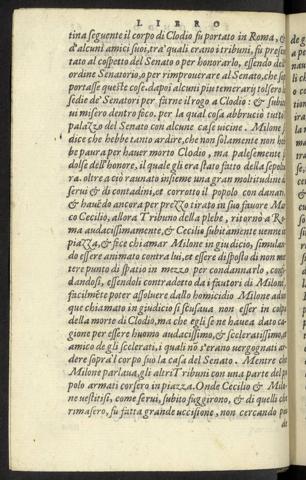 LIBRO
tina seguente il corpo di Clodio fu portato in Roma, &
d'alcuni amici suoi, tra' quali erano i tribuni, fu presen
tato al cospetto del Senato o per honorarlo, essendo del
ordine Senatorio, o per rimprouerare al Senato, che sop
portasse queste cose. dapoi alcuni piu temerarij tolsero le
sedie de' Senatori per farne il rogo a Clodio: & subito
ui misero dentro foco, per la qual cosa abbruciò tutto il
palazzo del Senato con alcune case uicine. Milone si
dice che hebbe tanto ardire, che non solamente non heb
be paura per hauer morto Clodio, ma palesemente si
dolse dell'honore, il quale gli era stato fatto della sepoltu
ra. oltre a ciò raunato insieme una gran moltitudine di
serui & di contadini, et corrotto il popolo con danari,
& hauēdo ancora per prezzo tirato in suo fauore Mar
co Cecilio, allora Tribuno della plebe, ritornò a Ro
ma audacissimamente, & Cecilio subitamente uenne in
piazza, & fice chiamar Milone in giudicio, simulan
do essere animato contra lui, et essere disposto di non met
tere punto di spatio in mezzo per condannarlo, confi
dandosi, essendoli contradetto da i fautori di Milone,
facilmēte poter assoluere dallo homicidio Milone adun
que chiamato in giudicio si scusaua non esser in colpa
della morte di Clodio, ma che egli se ne hauea dato ca
gione per essere huomo audacissimo, & sceleratissimo,
amico de gli scelerati, i quali nō s'erano uergognati ar
dere sopra'l corpo suo la casa del Senato. Mentre che
Milone parlaua, gli altri Tribuni con una parte del po
polo armati corsero in piazza. Onde Cecilio & Milo
ne uestitisi, come serui, subito fuggirono, & di quelli che
rimasero, fu fatta grande uccisione, non cercando piu